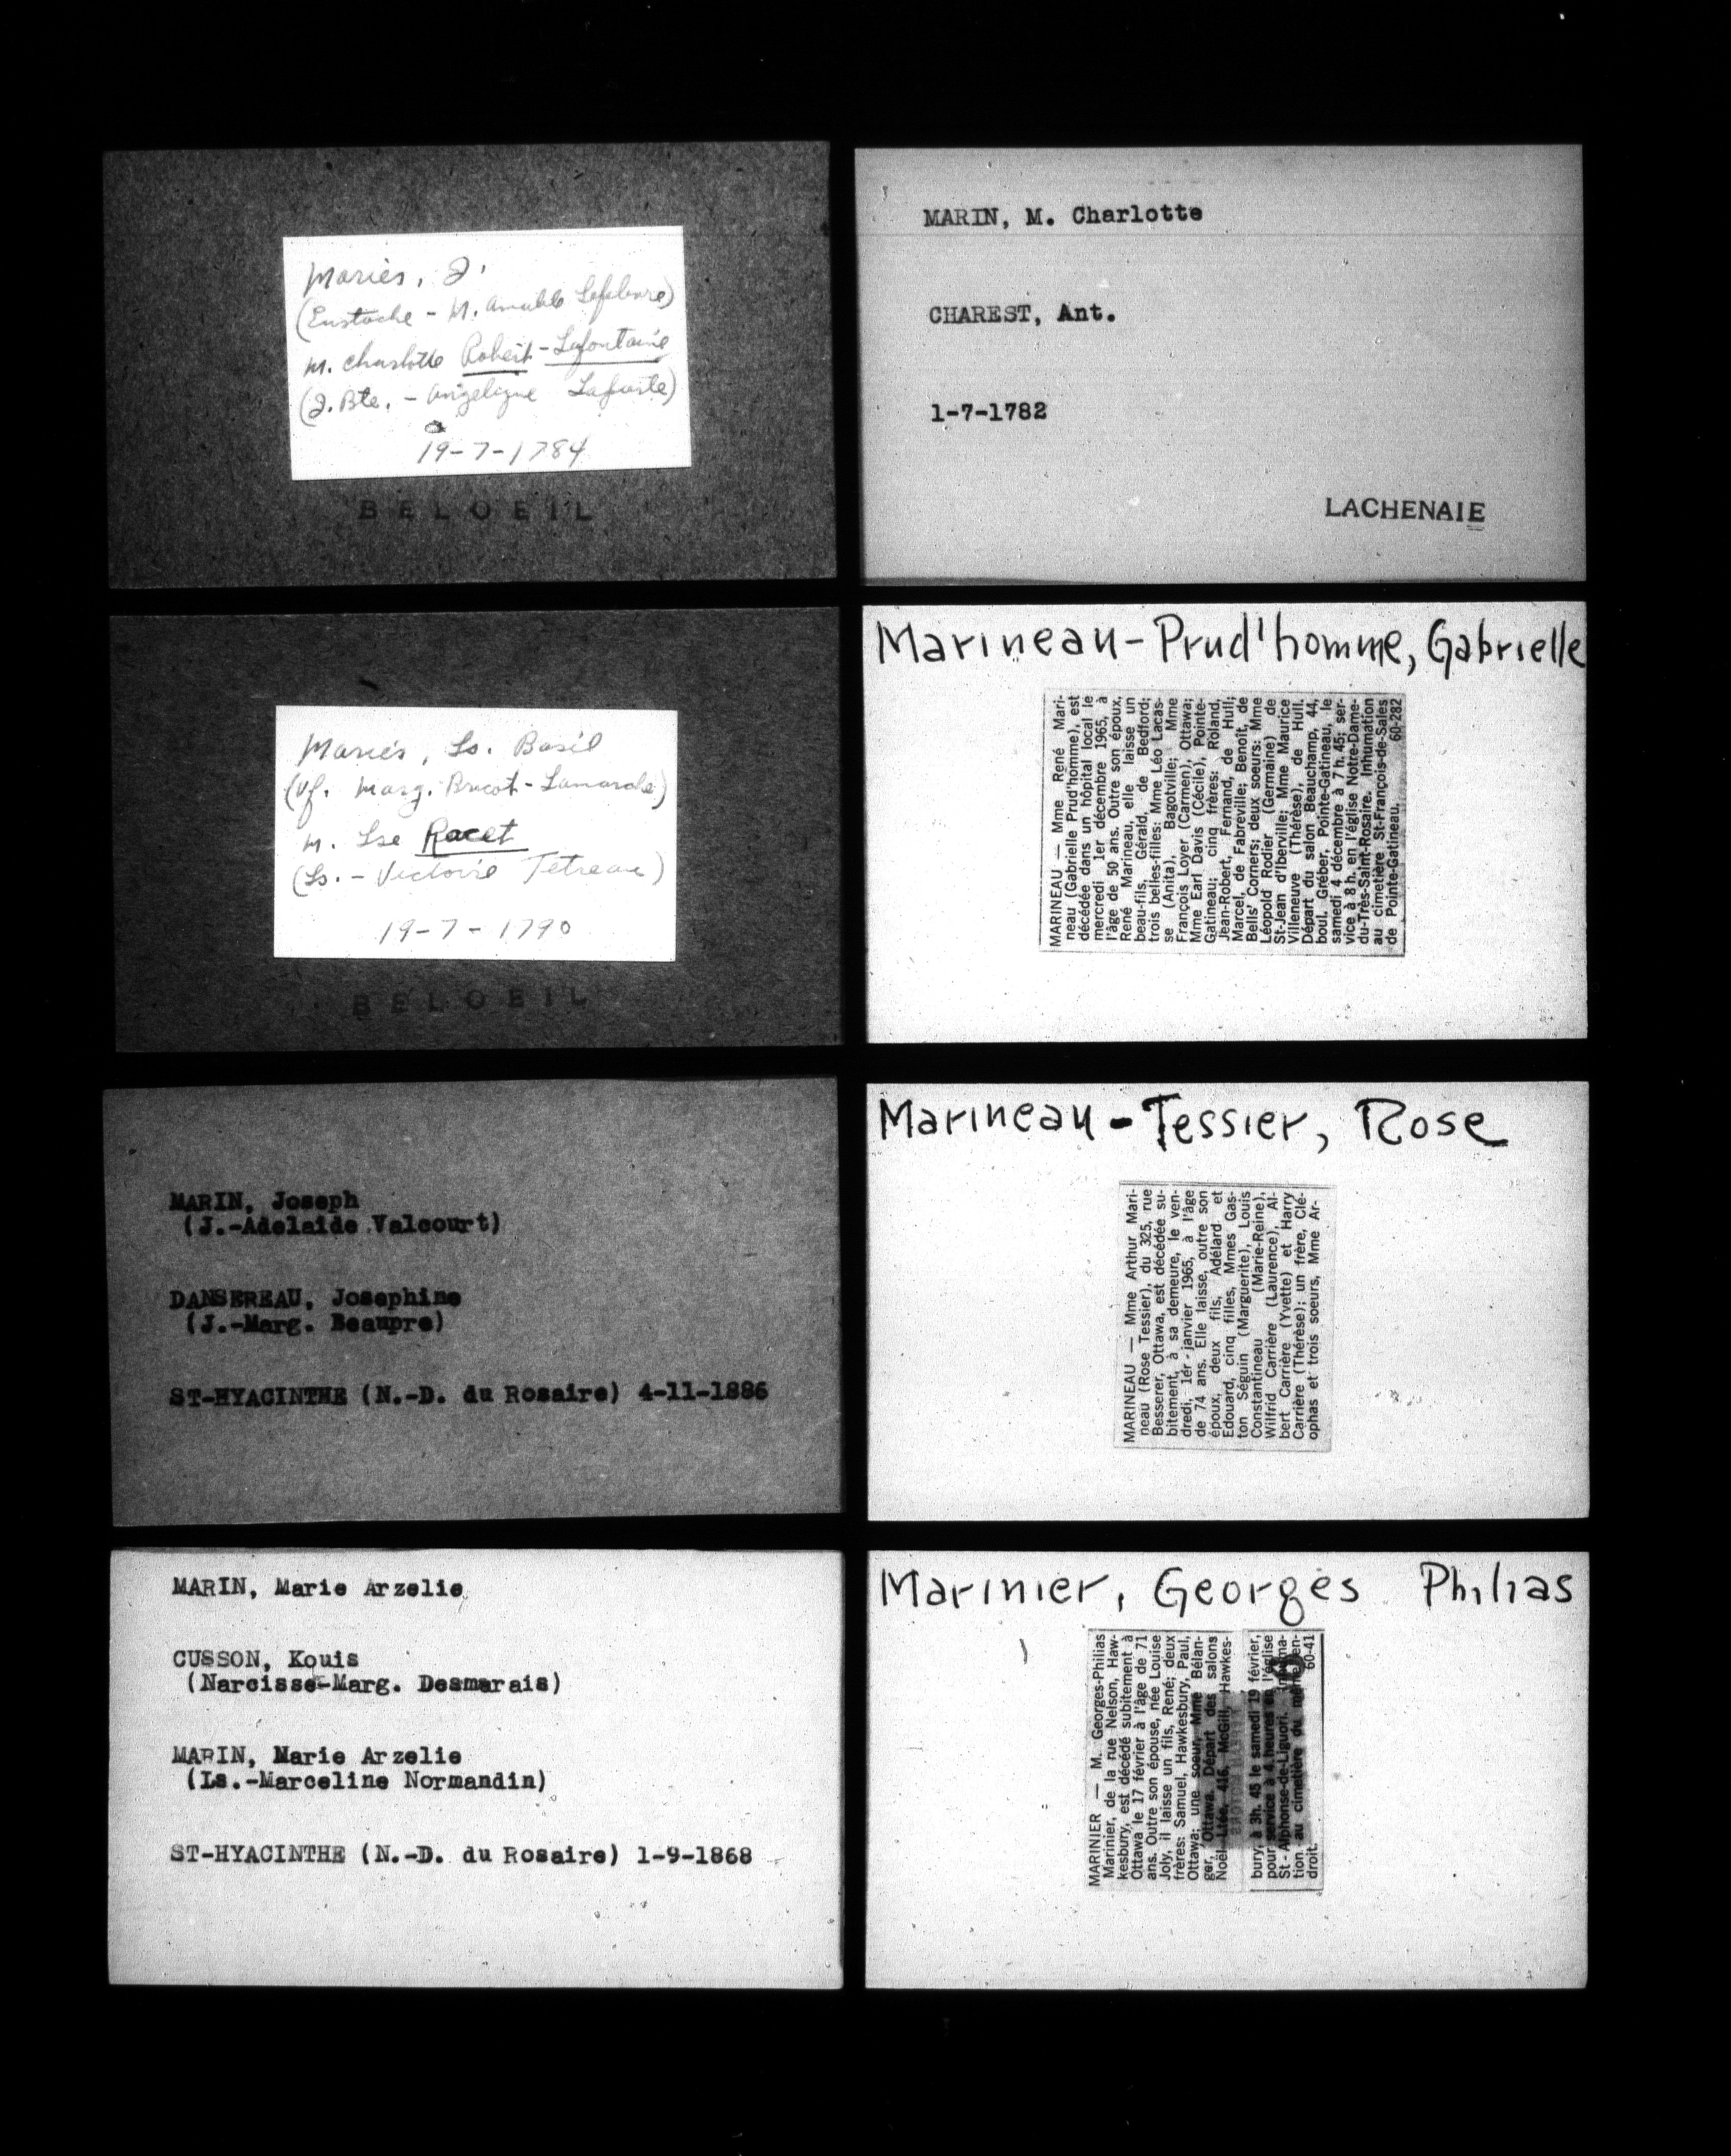 Mariés, J.
(Eustache - M. Amable Lefebvre)
m. Charlotte Robert-Lafontaine
(J. Bte. - Angélique Laforte)
19-7-1784
BELOEIL
Mariés, Ls. Basil
(Vf. Marg. Brucot-Lamarche)
m. Lse Racet
(Ls. - Victoire Tetreau)
19-7-1790
BELOEIL
MARIN, Joseph
(J.-Adelaide Valcourt)
DANSEREAU, Josephine
(J.-Marg. Beaupre)
ST-HYACINTHE (N.-D. du Rosaire) 4-11-1886
MARIN, Marie Arzelie
CUSSON, Kouis
(Narcisse-Marg. Desmarais)
MARIN, Marie Arzelie
(Ls.-Marceline Normandin)
ST-HYACINTHE (N.-D. du Rosaire) 1-9-1868
MARIN, M. Charlotte
CHAREST, Ant.
1-7-1782
LACHENAIE
Marineau-Prud'homme, Gabrielle
MARINEAU — Mme René Mari-
neau (Gabrielle Prud'homme), est
décédée dans un hôpital local le
mercredi 1er décembre 1965, à
l'âge de 50 ans. Outre son époux,
René Marineau, elle laisse un
beau-fils, Gérald, de Bedford;
trois belles-filles: Mme Léo Lacas-
se (Anita), Bagotville; Mme
François Loyer (Carmen), Ottawa;
Mme Earl Davis (Cécile), Pointe-
Gatineau; cinq frères: Roland,
Jean-Robert, Fernand, de Hull;
Marcel, de Fabreville; Benoit, de
Bells' Corners; deux soeurs: Mme
Léopold Rodier (Germaine) de
St-Jean d'Iberville; Mme Maurice
Villeneuve (Thérèse), de Hull.
Départ du salon Beauchamp, 44,
boul. Gréber, Pointe-Gatineau, le
samedi 4 décembre à 7 h. 45; ser-
vice à 8 h. en l'église Notre-Dame-
du-Très-Saint-Rosaire. Inhumation
au cimetière St-François-de-Sales
de Pointe-Gatineau. 60-282
Marineau-Tessier, Rose
MARINEAU — Mme Arthur Mari-
neau (Rose Tessier), du 325, rue
Besserer, Ottawa, est décédée su-
bitement, à sa demeure, le ven-
dredi, 1er janvier 1965, à l'âge
de 74 ans. Elle laisse, outre son
époux, deux fils, Adélard et
Edouard, cinq filles, Mmes Gas-
ton Séguin (Marguerite), Louis
Constantineau (Marie-Reine),
Wilfrid Carrière (Laurence), Al-
bert Carrière (Yvette) et Harry
Carrière (Thérèse); un frère, Clé-
ophas et trois soeurs, Mme Ar-
Marinier, Georges Philias
MARINIER — M. Georges-Philias
Marinier, de la rue Nelson, Haw-
kesbury, est décédé subitement à
Ottawa le 17 février à l'âge de 71
ans. Outre son épouse, née Louise
Joly, il laisse un fils, René; deux
frères: Samuel, Hawkesbury, Paul,
Ottawa; une soeur, Mme Bélan-
ger, Ottawa. Départ des salons
Noël Ltée, 416, McGill, Hawkes-
bury, à 3h. 45 le samedi 19 février,
pour service à 4 heures en l'église
St-Alphonse-de-Liguori. Inhuma-
tion au cimetière du même en-
droit. 60-41